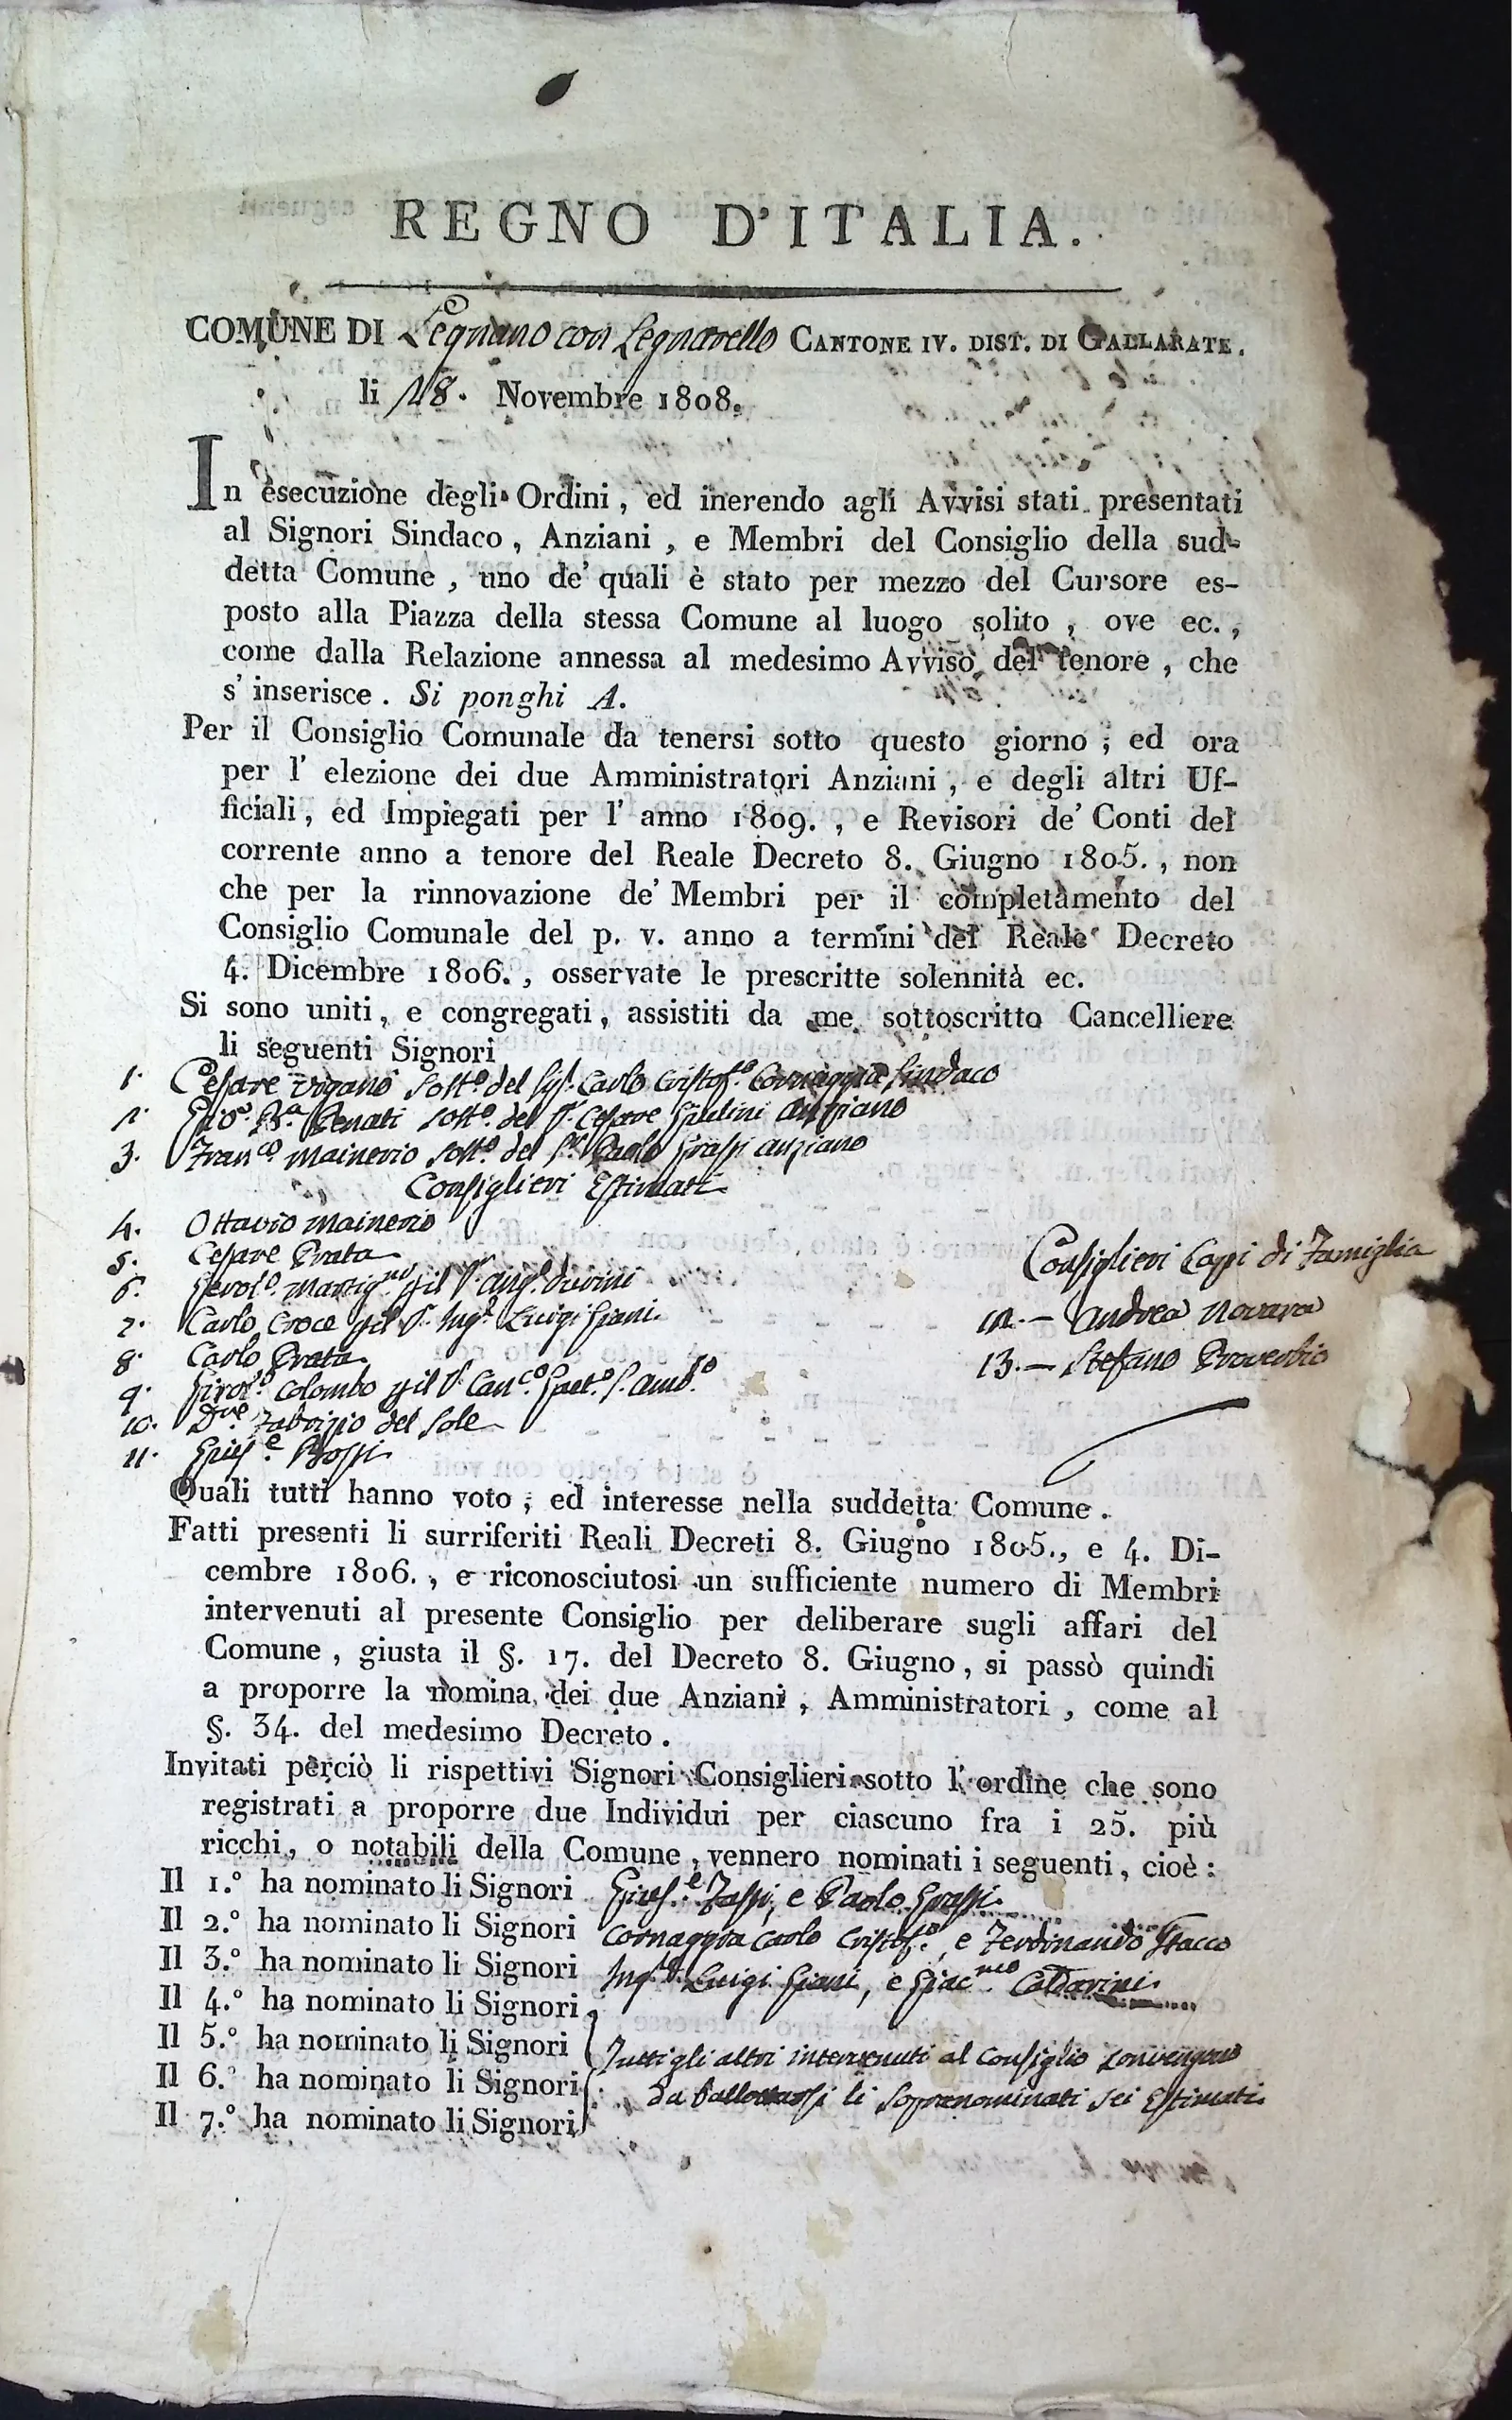 REGNO D'ITALIA.
COMUNE DI Legnano con Legnarello CANTONE IV. DIST. DI GALLARATE.
li 18. Novembre 1808.
In esecuzione degli Ordini, ed inerendo agli Avvisi stati presentati
al Signori Sindaco, Anziani, e Membri del Consiglio della sud-
detta Comune, uno de' quali è stato per mezzo del Cursore es-
posto alla Piazza della stessa Comune al luogo solito, ove ec.,
come dalla Relazione annessa al medesimo Avviso del tenore, che
s' inserisce. Si ponghi A.
Per il Consiglio Comunale da tenersi sotto questo giorno; ed ora
per l' elezione dei due Amministratori Anziani, e degli altri Uf-
ficiali, ed Impiegati per l' anno 1809., e Revisori de' Conti del
corrente anno a tenore del Reale Decreto 8. Giugno 1805., non
che per la rinnovazione de' Membri per il completamento del
Consiglio Comunale del p. v. anno a termini del Reale Decreto
4. Dicembre 1806., osservate le prescritte solennità ec.
Si sono uniti, e congregati, assistiti da me sottoscritto Cancelliere
li seguenti Signori
1. Cesare Viganò Sostº. del Sigr. Carlo Cristofº. Cornaggia Sindaco
2. Gioº. Bª. Penati Sostº. del Sr. Cesare Giulini Anziano
3. Francº Mainerio Sostº. del Sr. Paolo Grassi Anziano
Consiglieri Estimati
4. Ottavio Mainerio
5. Cesare Prata
6. Gerolº. Martigº pil Sr. Angº. Durini
7. Carlo Croce pil Sr. Ingº. Luigi Giani.
8. Carlo Prata
9. Girolº. Colombo pil Sr. Canº. Gaetº. S. Ambº.
10. Dre. Fabrizio del Sole
11. Giuse. Bossi
Consiglieri Capi di Famiglia
12. — Andrea Novara
13. — Stefano Proverbio
Quali tutti hanno voto; ed interesse nella suddetta Comune.
Fatti presenti li surriferiti Reali Decreti 8. Giugno 1805., e 4. Di-
cembre 1806., e riconosciutosi un sufficiente numero di Membri
intervenuti al presente Consiglio per deliberare sugli affari del
Comune, giusta il §. 17. del Decreto 8. Giugno, si passò quindi
a proporre la nomina dei due Anziani, Amministratori, come al
§. 34. del medesimo Decreto.
Invitati perciò li rispettivi Signori Consiglieri sotto l' ordine che sono
registrati a proporre due Individui per ciascuno fra i 25. più
ricchi, o notabili della Comune, vennero nominati i seguenti, cioè:
Il 1.º ha nominato li Signori Giuse. Fassi, e Paolo Grassi.
Il 2.º ha nominato li Signori Cornaggia Carlo Cristofº., e Ferdinando Stacco
Il 3.º ha nominato li Signori Ingº. Luigi Giani, e Giacmo. Caldarini.
Il 4.º ha nominato li Signori
Il 5.º ha nominato li Signori
Il 6.º ha nominato li Signori
Il 7.º ha nominato li Signori
Tutti gli altri intervenuti al Consiglio convengono
da ballottarsi li sopranominati sei Estimati.